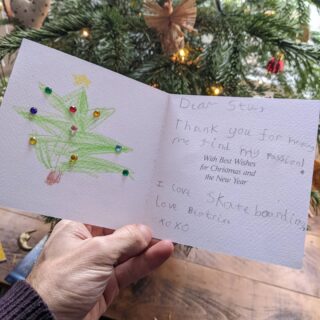 Dear Stuz,
Thank you for
me find my passion!
With Best Wishes
for Christmas and
the New Year
I love Skateboarding
Love Beatrice
XOXO